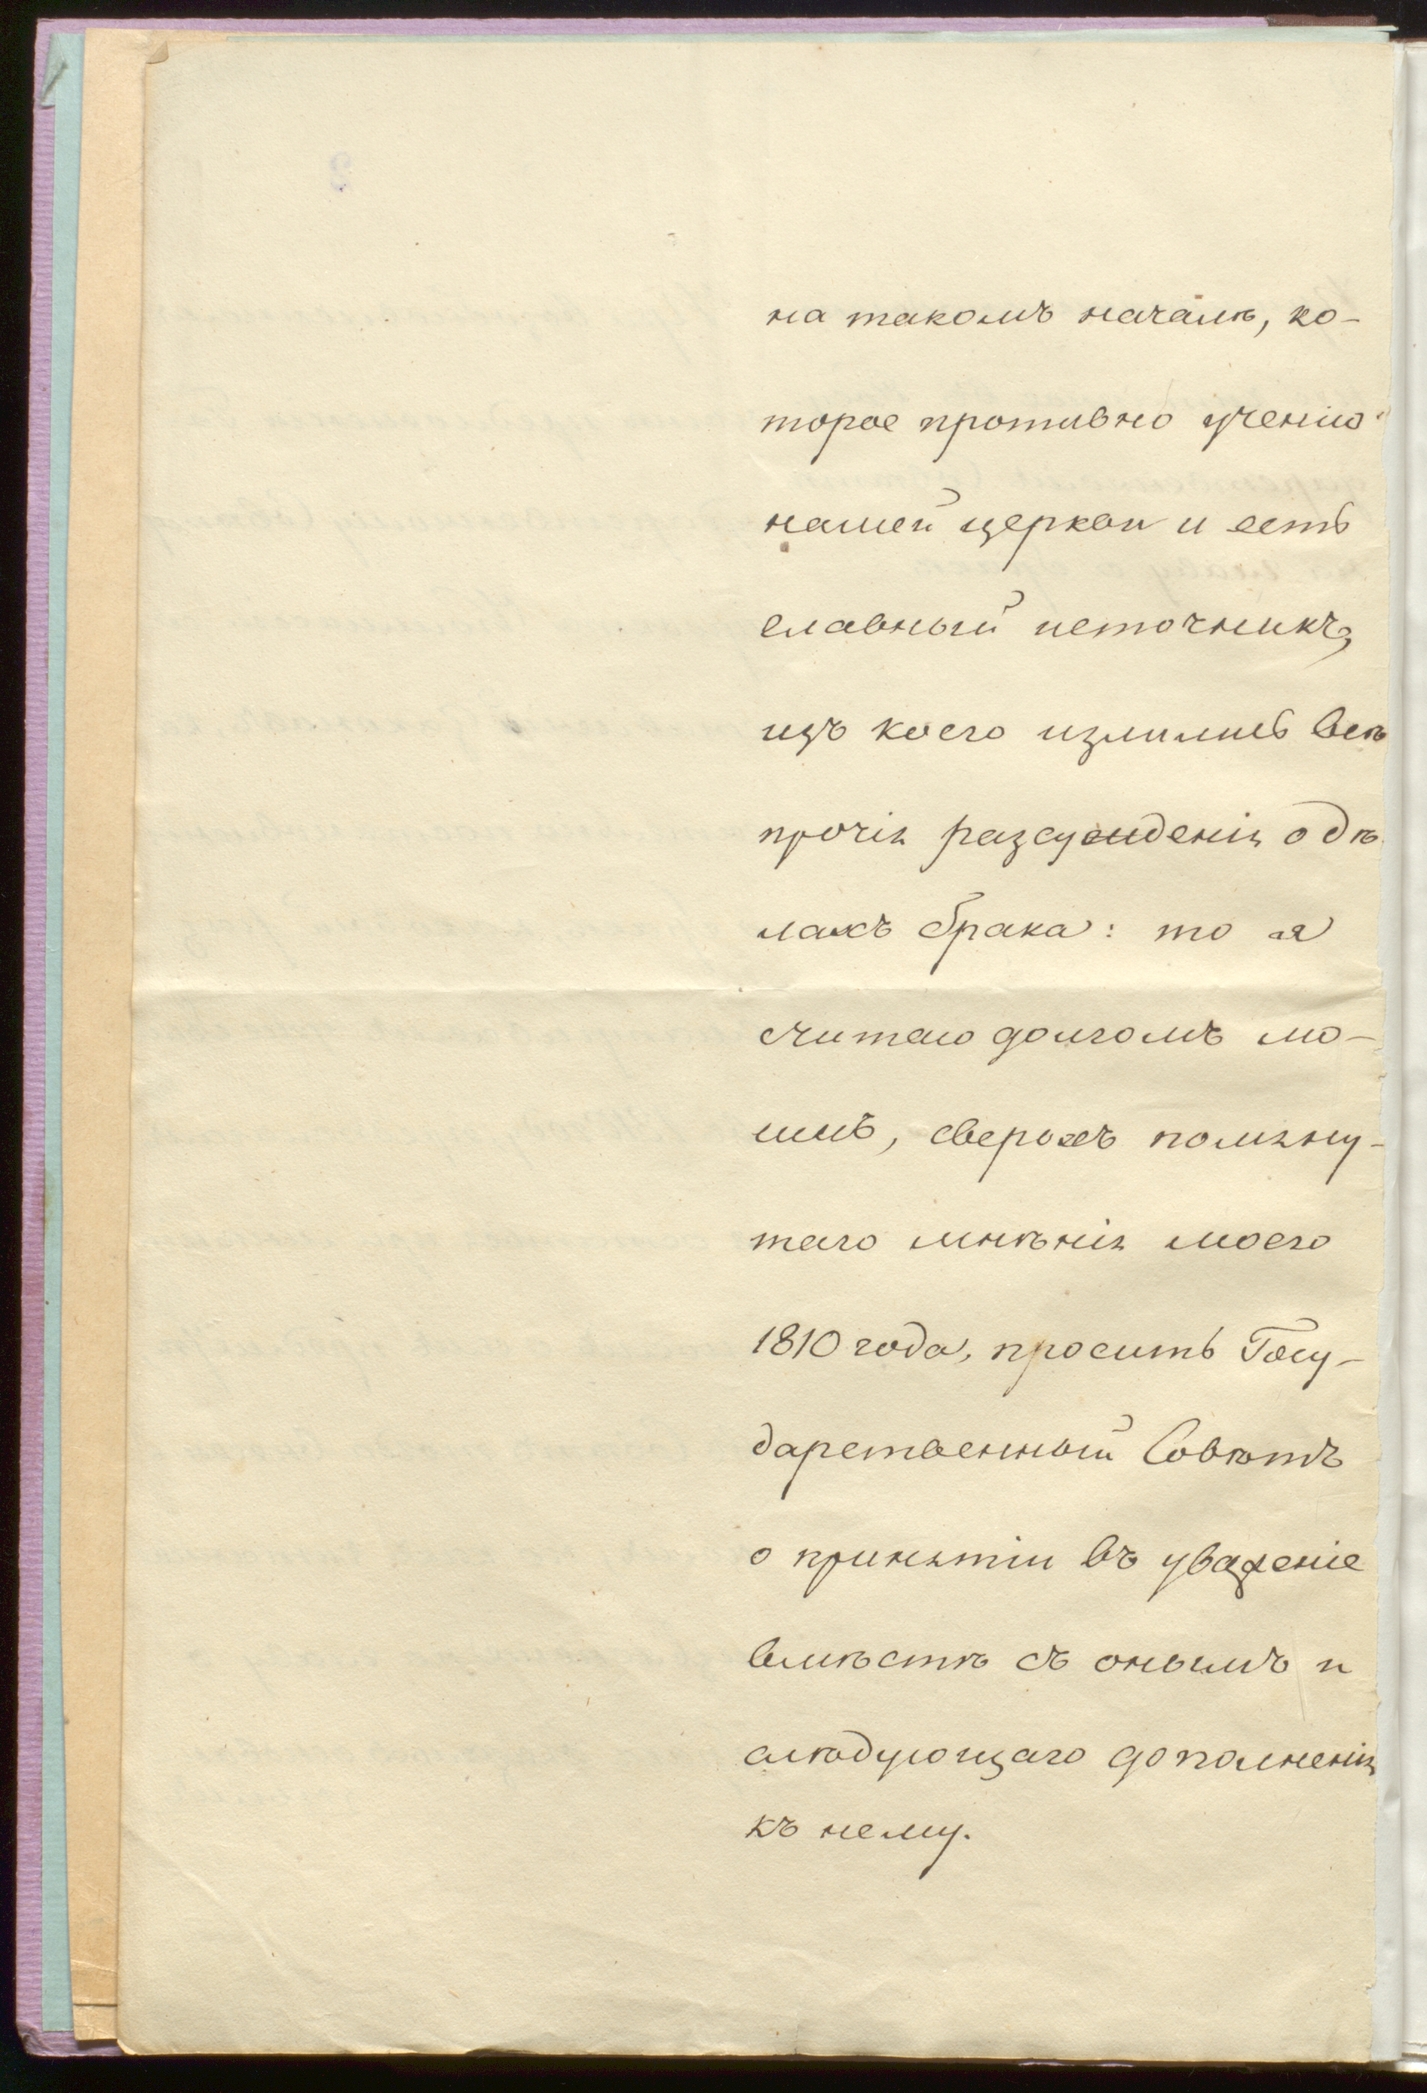 на такомъ началѣ, ко-
торое противно ученію
нашей церкви и есть
главный источникъ,
изъ коего излились всѣ
прочія разсужденія о дѣ
лахъ брака: то я
считаю долгомъ мо-
имъ, сверхъ помяну-
таго мнѣнія моего
1810 года, просить Госу-
дарственный Совѣтъ
о принятіи въ уваженіе
вмѣстѣ съ онымъ и
слѣдующаго дополненія
къ нему.